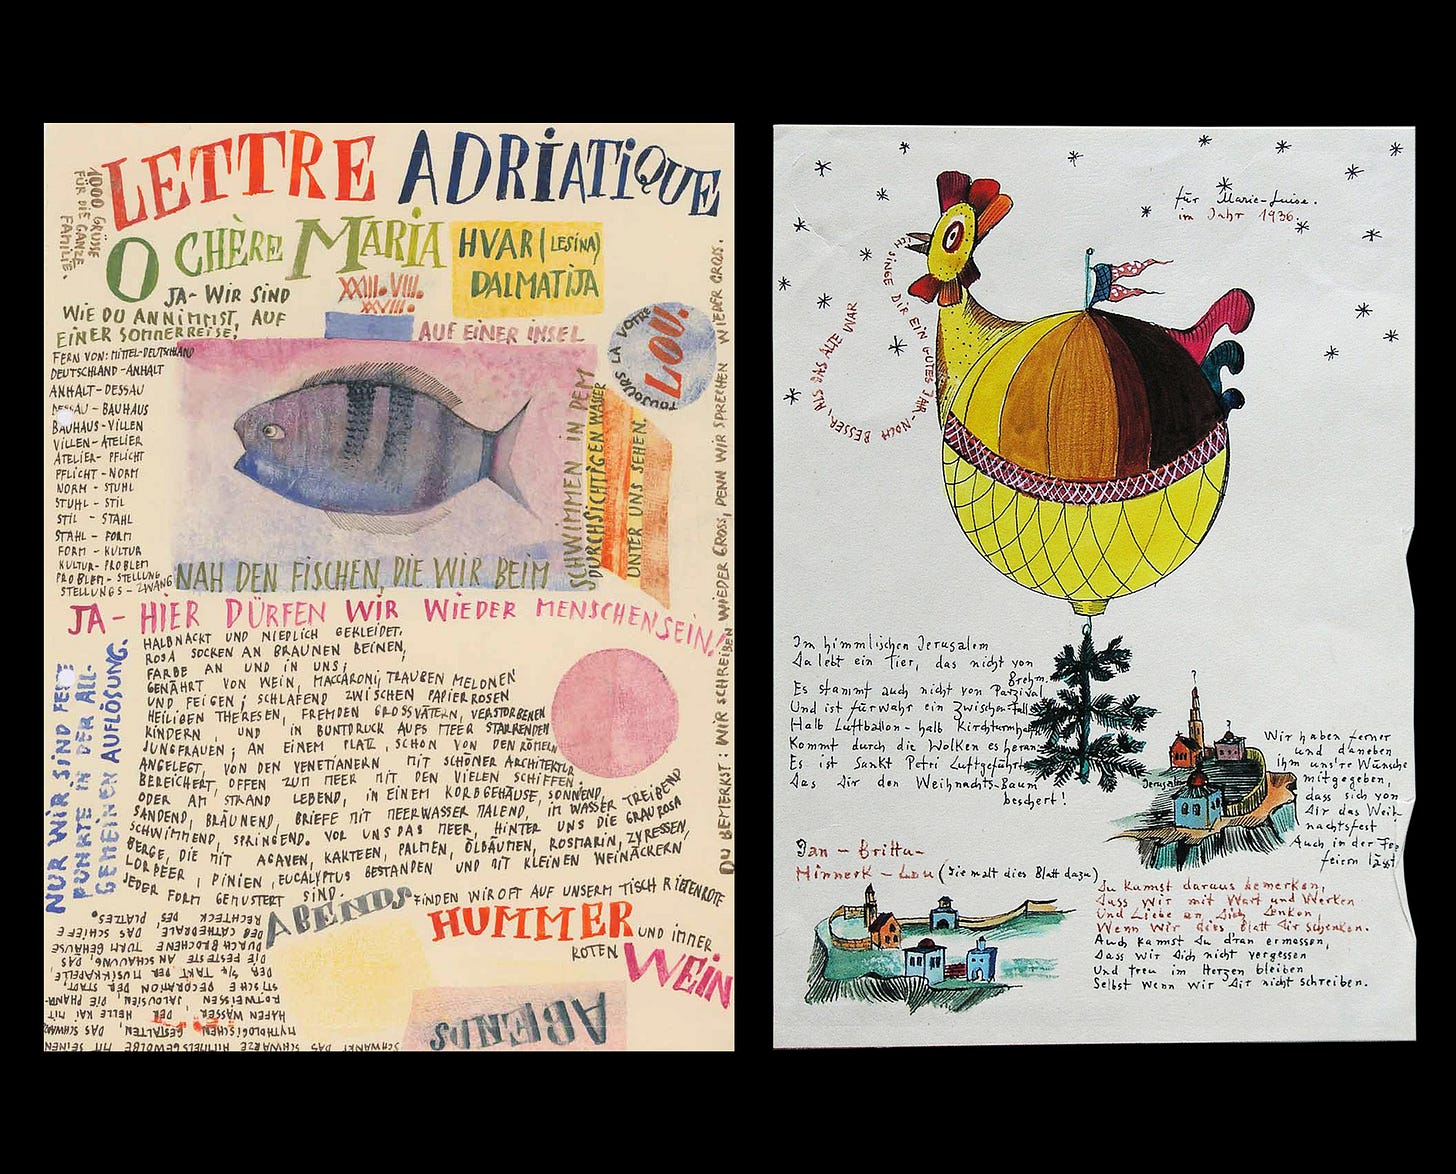 LETTRE ADRIATIQUE
1000 GRÜSSE
FÜR DIE GANZE
FAMILIE.
O CHÈRE MARIA
HVAR (LESINA)
DALMATIJA
XXIII. VIII.
XXVIII.
JA - WIR SIND
WIE DU ANNIMMST, AUF
EINER SOMMERREISE!
AUF EINER INSEL
TOUJOURS LA VOTRE
LOU.
FERN VON: MITTEL-DEUTSCHLAND
DEUTSCHLAND - ANHALT
ANHALT - DESSAU
DESSAU - BAUHAUS
BAUHAUS - VILLEN
VILLEN - ATELIER
ATELIER - PFLICHT
PFLICHT - NORM
NORM - STUHL
STUHL - STIL
STIL - STAHL
STAHL - FORM
FORM - KULTUR
KULTUR - PROBLEM
PROBLEM - STELLUNG
STELLUNGS - ZWANG
NAH DEN FISCHEN, DIE WIR BEIM
SCHWIMMEN IN DEM
DURCHSICHTIGEN WASSER
UNTER UNS SEHEN.
JA - HIER DÜRFEN WIR WIEDER MENSCHEN SEIN!
DU BEMERKST: WIR SCHREIBEN WIEDER GROSS, DENN WIR SPRECHEN WIEDER GROSS.
NUR WIR SIND FEST
PUNKTE IN DER ALL-
GEMEINEN AUFLÖSUNG.
HALBNACKT UND NIEDLICH GEKLEIDET,
ROSA SOCKEN AN BRAUNEN BEINEN,
FARBE AN UND IN UNS;
GENÄHRT VON WEIN, MACCARONI, TRAUBEN MELONEN
UND FEIGEN; SCHLAFEND ZWISCHEN PAPIERROSEN
HEILIGEN THERESEN, FREMDEN GROSSVÄTERN, VERSTORBENEN
KINDERN, UND IN BUNTDRUCK AUFS MEER STARRENDEN
JUNGFRAUEN; AN EINEM PLATZ, SCHON VON DEN RÖMERN
ANGELEGT, VON DEN VENETIANERN MIT SCHÖNER ARCHITEKTUR
BEREICHERT, OFFEN ZUM MEER MIT DEN VIELEN SCHIFFEN.
ODER AM STRAND LEBEND, IN EINEM KORBGEHÄUSE, SONNEND,
SANDEND, BRÄUNEND, BRIEFE MIT MEERWASSER MALEND, IM WASSER TREIBEND
SCHWIMMEND, SPRINGEND. VOR UNS DAS MEER, HINTER UNS DIE GRAUROSA
BERGE, DIE MIT AGAVEN, KAKTEEN, PALMEN, ÖLBÄUMEN, ROSMARIN, ZYPRESSEN,
LORBEER, PINIEN, EUCALYPTUS BESTANDEN UND MIT KLEINEN WEINÄCKERN
JEDER FORM GEMUSTERT SIND.
ABENDS FINDEN WIR OFT AUF UNSERM TISCH RIESENROTE
HUMMER UND IMMER
ROTEN WEIN
ABENDS
SCHWANKT DAS SCHWARZE HIMMELSGEWÖLBE MIT SEINEN
MYTHOLOGISCHEN GESTALTEN, DAS SCHWARZE
HAFEN WASSER, DER HELLE KAI MIT
ROTWEISSEN JALOUSIEN, DIE PHAN-
STISCHE DECORATION DER STADT,
DER 3/4 TAKT DER MUSIKKAPELLE,
DIE FESTE BEGEHENDE ANSCHAUUNG, DAS
DURCH BROCHENE TURM GEHÄUSE
DER CATHEDRALE, DAS SCHIEFE
RECHTECK DES PLATZES.
für Marie-Luise.
im Jahr 1936.
ICH SINGE DIR EIN GUTES JAHR - NOCH BESSER, ALS DAS ALTE WAR
Im himmlischen Jerusalem
Da lebt ein Tier, das nicht von
Brehm.
Es stammt auch nicht von Parzival
Und ist fürwahr ein Zwischen-Fall
Halb Luftballon - halb Kirchturmhahn
Kommt durch die Wolken es heran
Es ist Sankt Petri Luftgefährt
Das Dir den Weihnachts-Baum
beschert!
Jerusalem
Wir haben ferner
und daneben
ihm uns're Wünsche
mitgegeben,
dass sich von
Dir das Weih-
nachtsfest
Auch in der Fe
feiern lässt
Jan - Britta -
Minnerk - Lou (die malt dies Blatt dazu)
Du kannst daraus bemerken,
Dass wir mit Wort und Werken
Und Liebe an Dich denken
Wenn wir dies Blatt Dir schenken.
Auch kannst Du d'ran ermessen,
Dass wir Dich nicht vergessen
Und treu im Herzen bleiben
Selbst wenn wir Dir nicht schreiben.